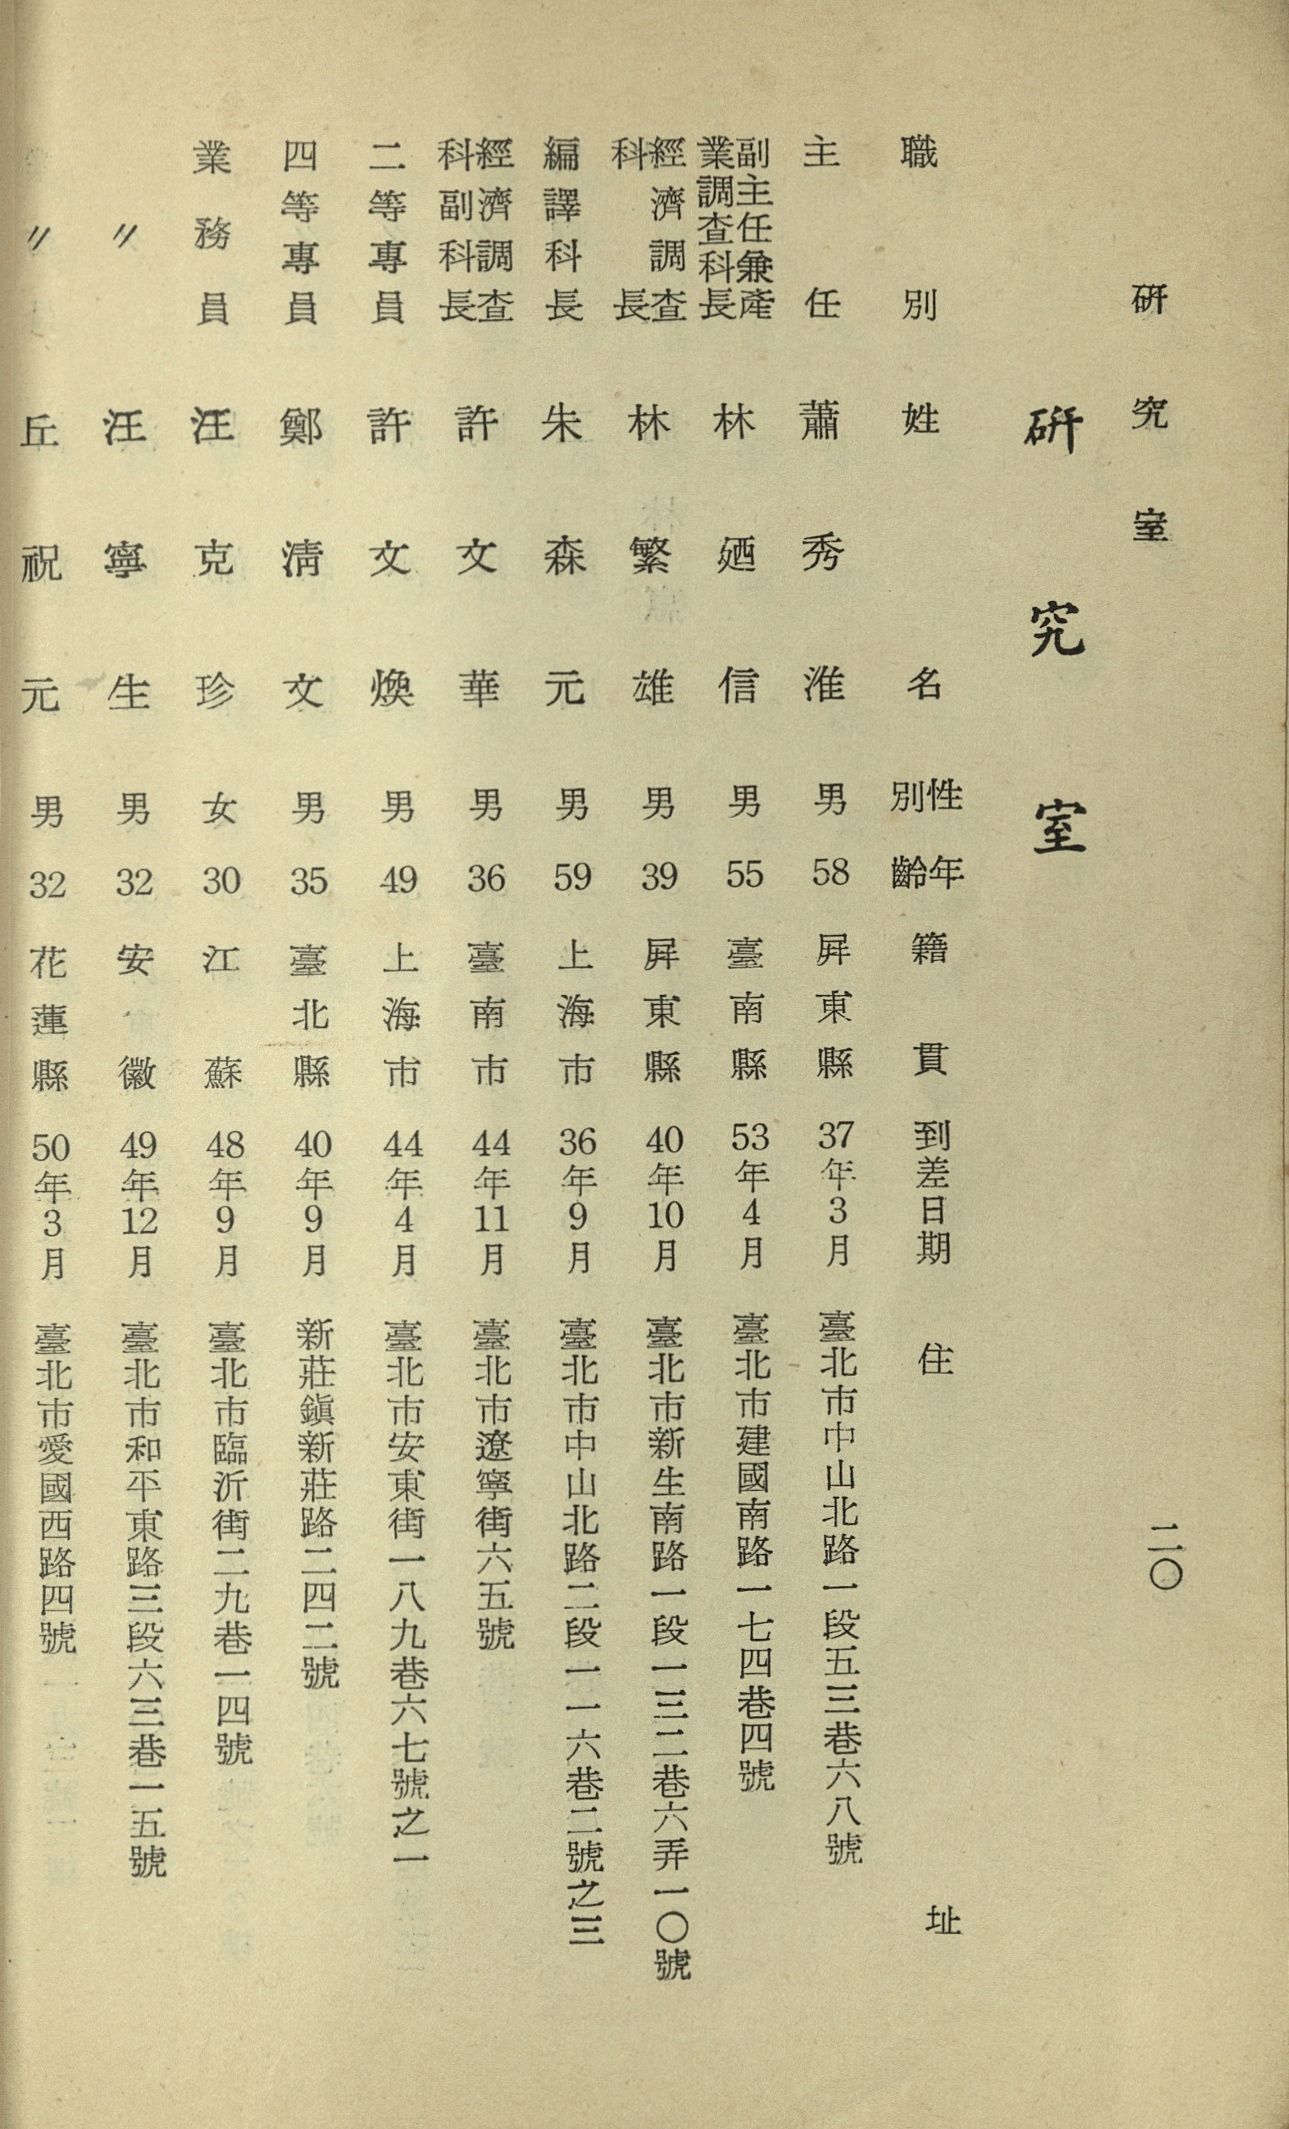 研究室
二〇
研究室
職別 姓名 性別 年齡 籍貫 到差日期 住址
主任 蕭秀淮 男 58 屛東縣 37年3月 臺北市中山北路一段五三巷六八號
副主任兼產業調查科科長 林廼信 男 55 臺南縣 53年4月 臺北市建國南路一七四巷四號
經濟調查科長 林繁雄 男 39 屛東縣 40年10月 臺北市新生南路一段一三二巷六弄一〇號
編譯科長 朱森元 男 59 上海市 36年9月 臺北市中山北路二段一一六巷二號之三
經濟調查科副科長 許文華 男 36 臺南市 44年11月 臺北市遼寧街六五號
二等專員 許文煥 男 49 上海市 44年4月 臺北市安東街一八九巷六七號之一
四等專員 鄭淸文 男 35 臺北縣 40年9月 新莊鎭新莊路二四二號
業務員 汪克珍 女 30 江蘇 48年9月 臺北市臨沂街二九巷一四號
〃 汪寧生 男 32 安徽 49年12月 臺北市和平東路三段六三巷一五號
〃 丘祝元 男 32 花蓮縣 50年3月 臺北市愛國西路四號